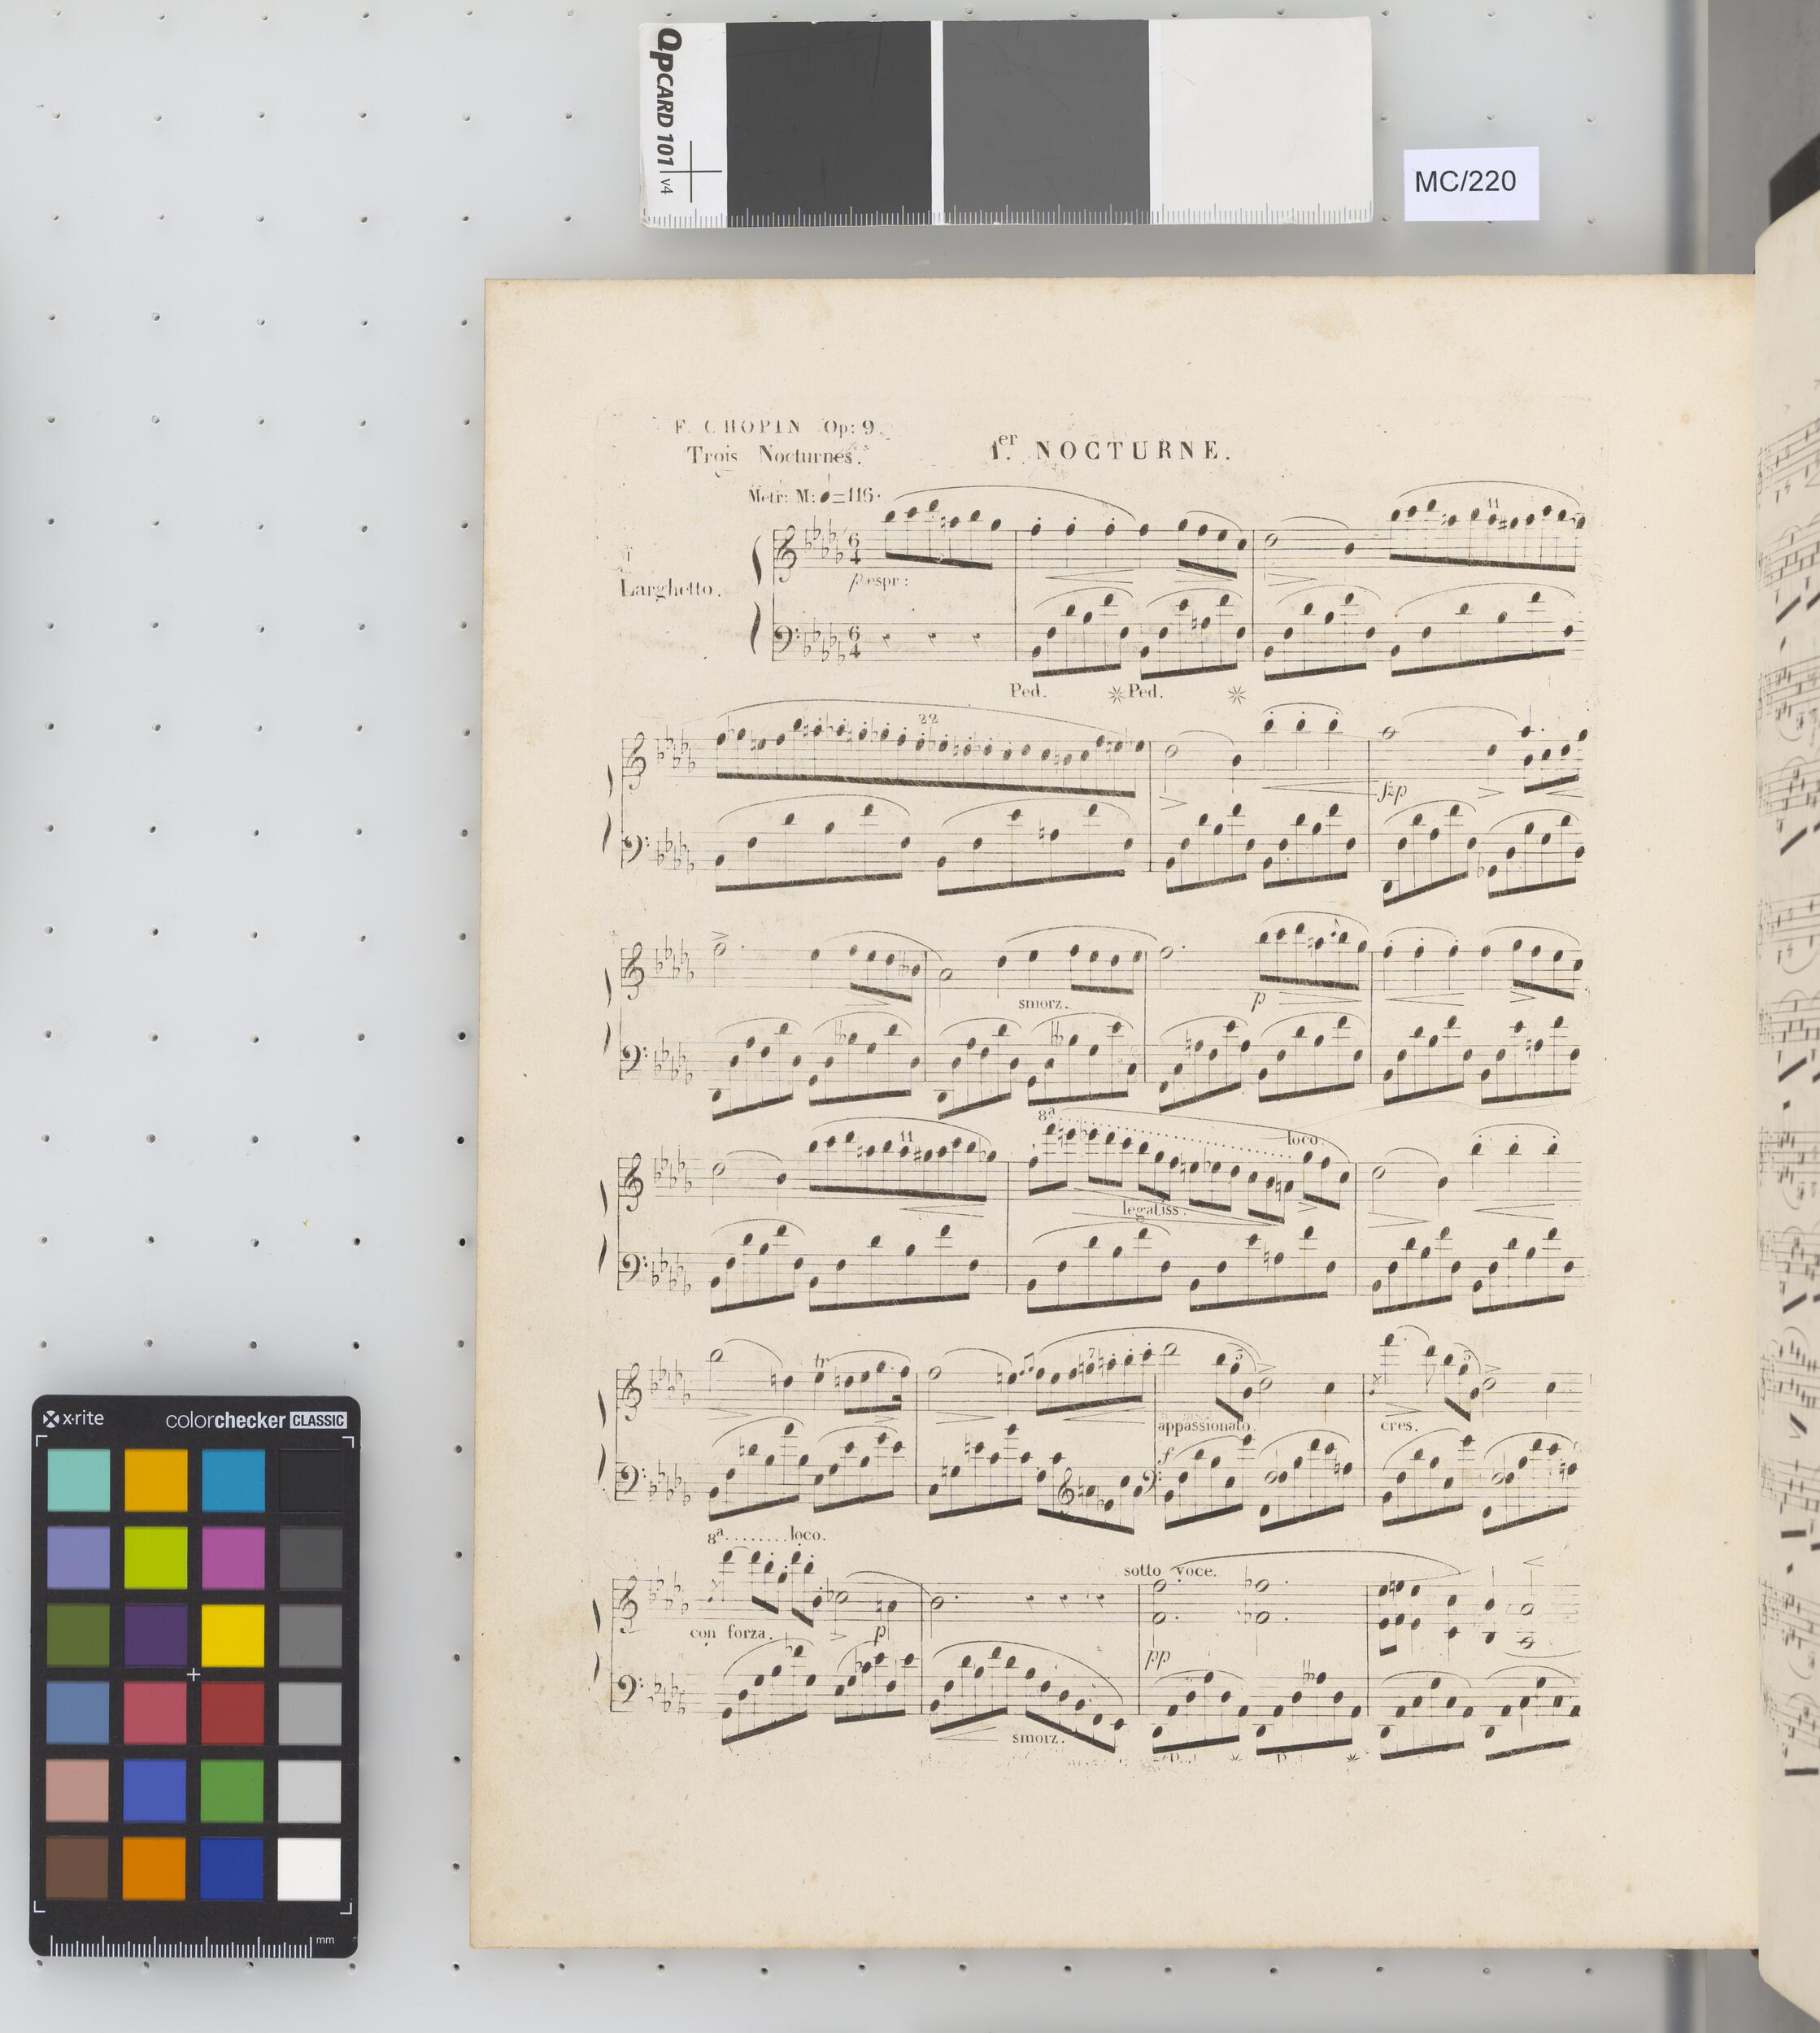 QpCARD 101 v4
MC/220
F. CHOPIN Op: 9.
Trois Nocturnes.
1.er NOCTURNE.
Metr: M: =116.
Larghetto.
6
4
p espr:
11
6
4
Ped. Ped.
22
fzp
smorz.
p
8a loco.
11
legatiss:
tr
7
3
3
appassionato.
cres.
f
8a........loco.
sotto voce.
con forza.
p
pp
smorz.
x-rite colorchecker CLASSIC
mm